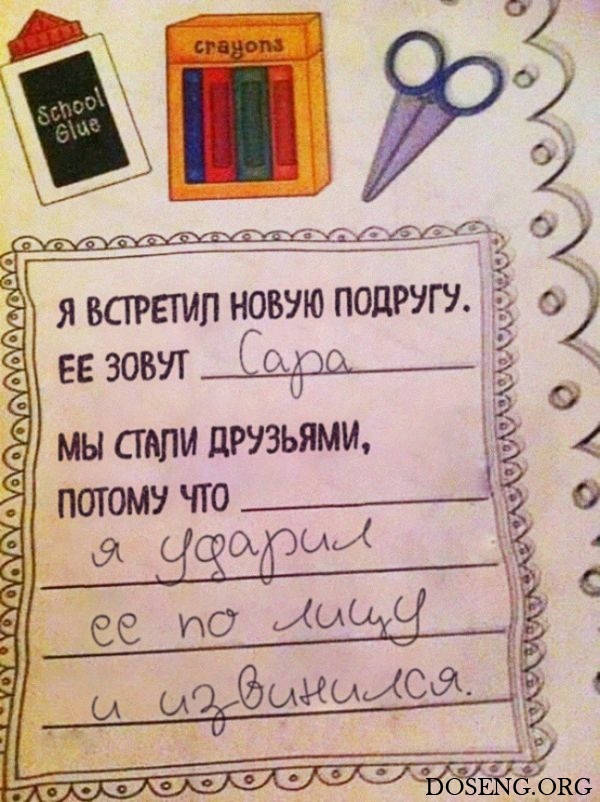 School
Glue
crayons
Я ВСТРЕТИЛ НОВУЮ ПОДРУГУ.
ЕЕ ЗОВУТ Сара
МЫ СТАЛИ ДРУЗЬЯМИ,
ПОТОМУ ЧТО
я ударил
ее по лицу
и извинился.
DOSENG.ORG